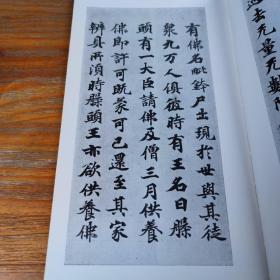 有佛名毗鉢尸出現於世與其徒
衆九万人俱彼時有王名曰槃
頭有一大臣請佛及僧三月供養
佛即許可既蒙可已還至其家
辦具所須時槃頭王亦欲供養佛